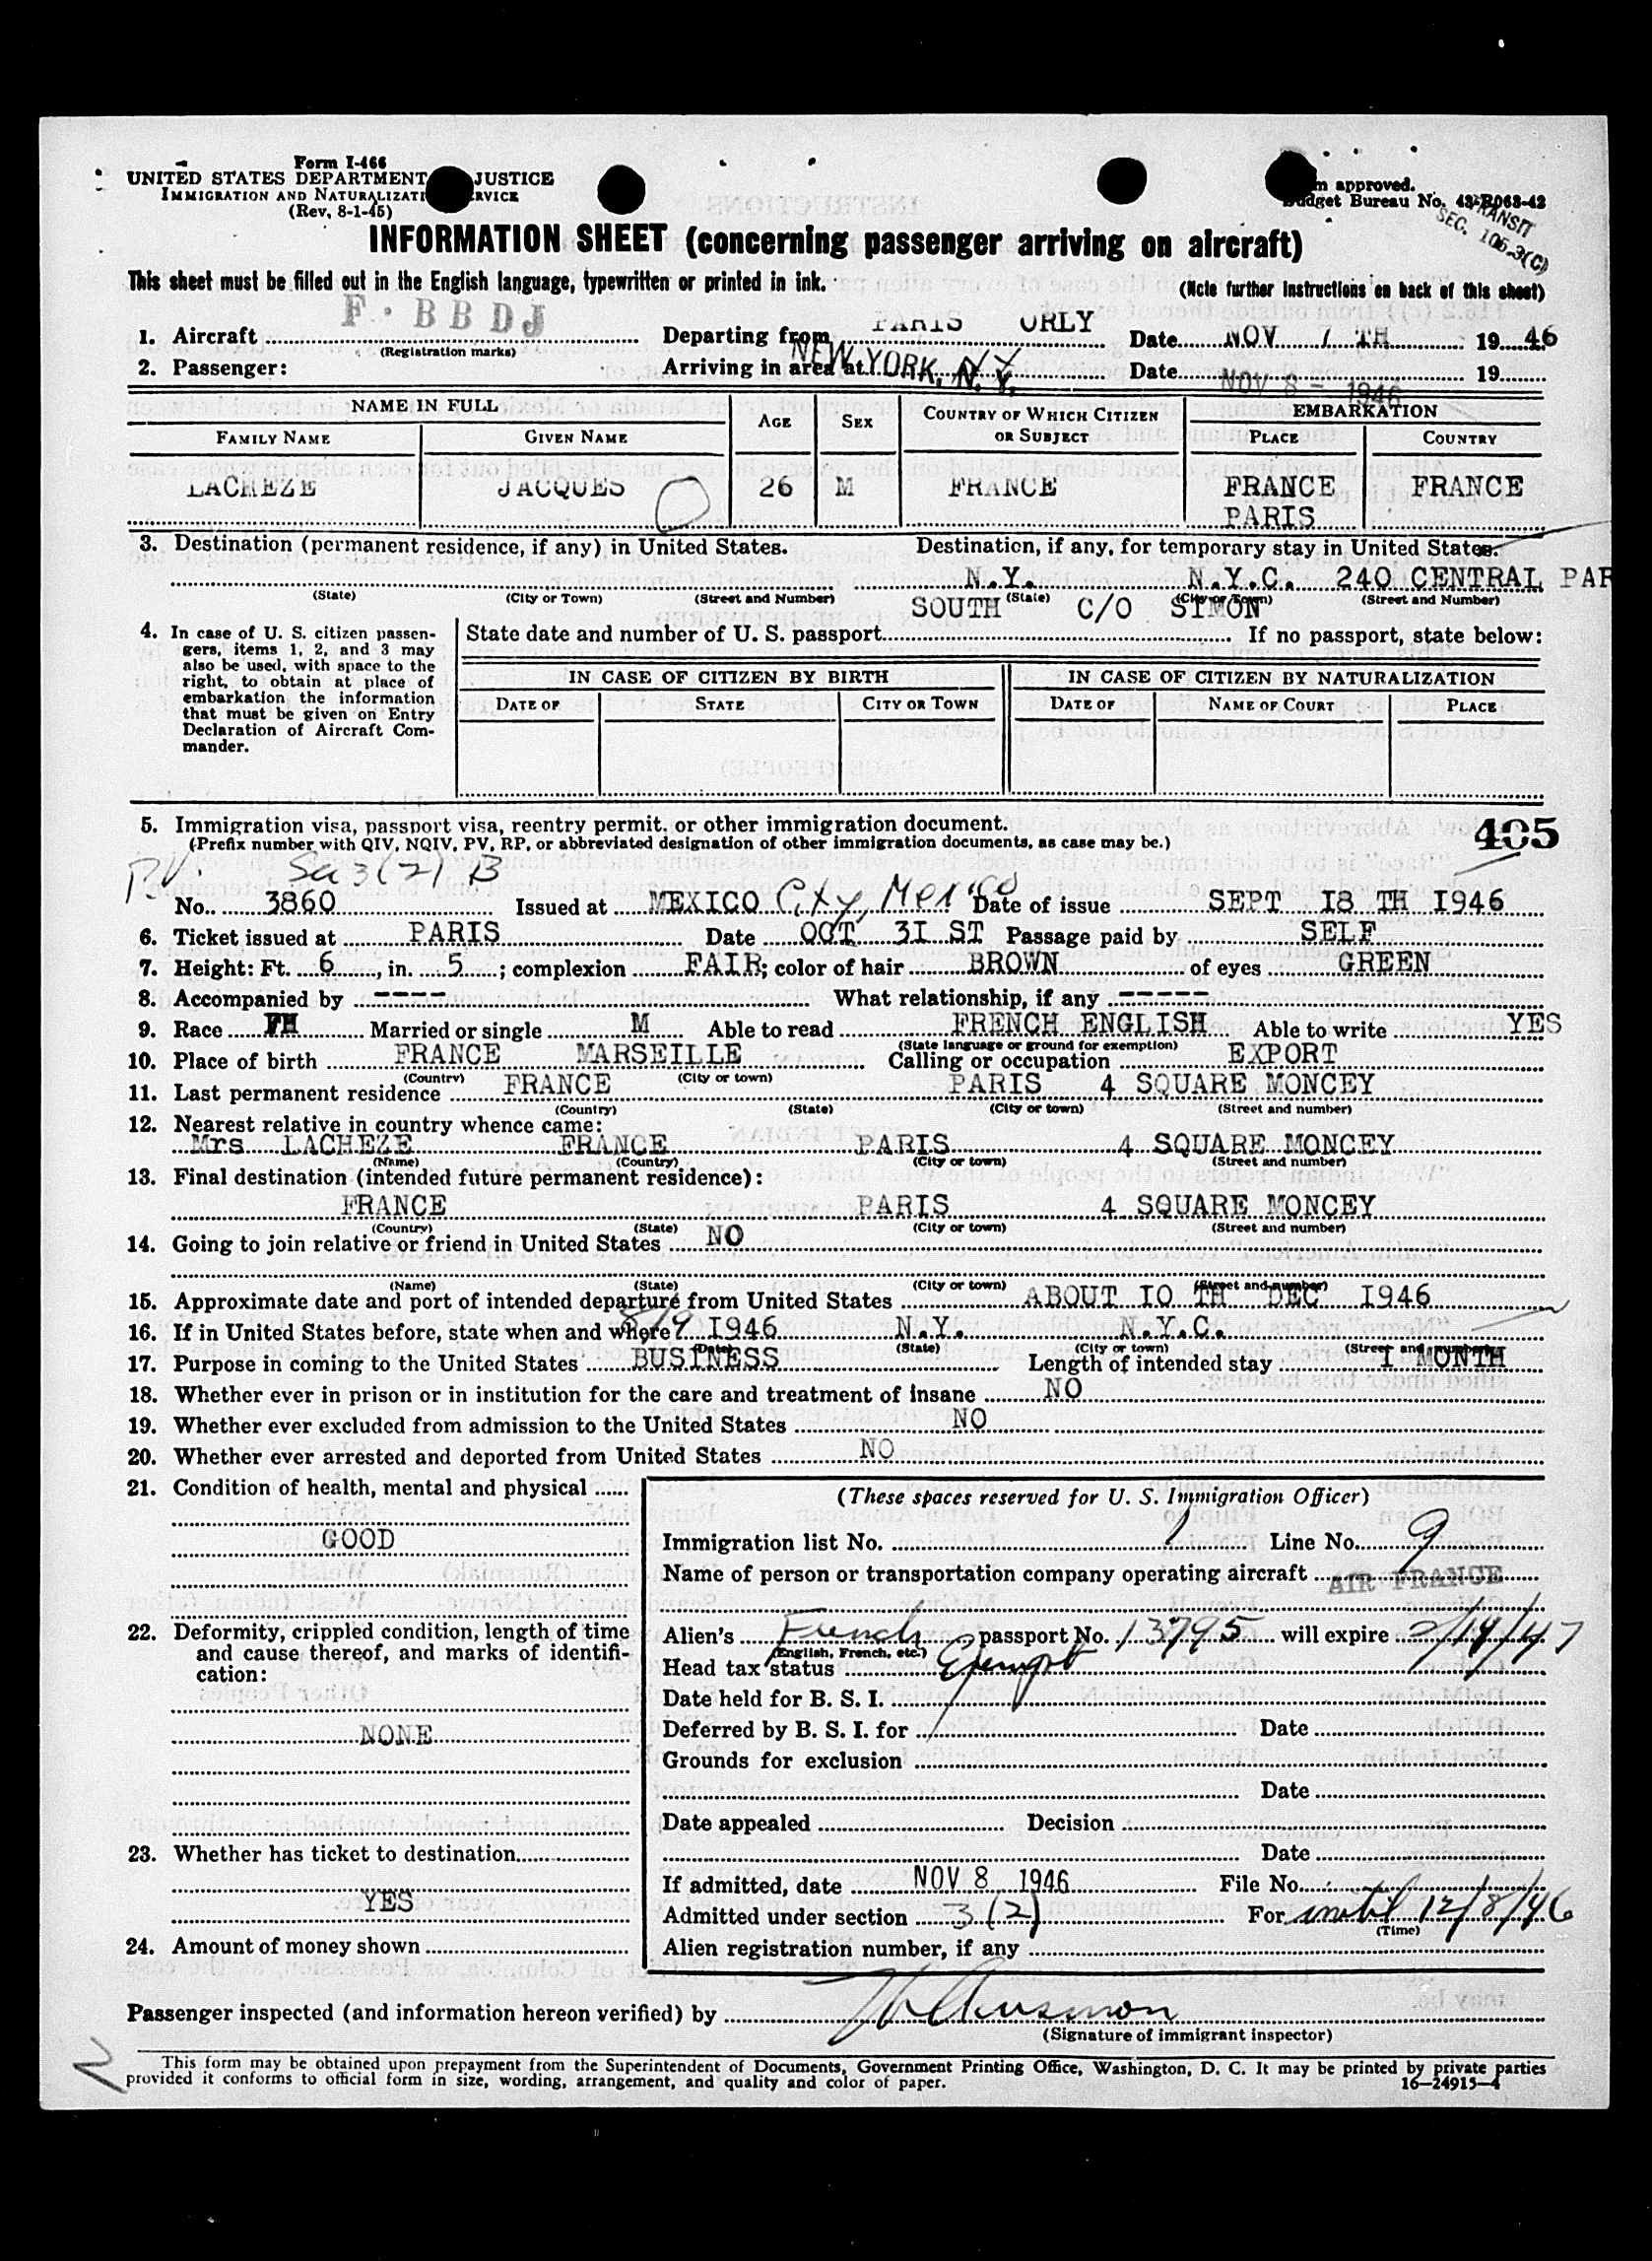 Form I-466
UNITED STATES DEPARTMENT JUSTICE
IMMIGRATION AND NATURALIZATI RVICE
(Rev. 8-1-45)
m approved.
udget Bureau No. 43-R063-42
TRANSIT
SEC. 105.3(C)
INFORMATION SHEET (concerning passenger arriving on aircraft)
This sheet must be filled out in the English language, typewritten or printed in ink. (Note further instructions on back of this sheet)
1. Aircraft F. BBDJ Departing from PARIS ORLY Date NOV 7 TH 1946
(Registration marks)
2. Passenger: Arriving in area at NEW YORK, N. Y. Date NOV 8 - 1946 19
NAME IN FULL AGE SEX COUNTRY OF WHICH CITIZEN OR SUBJECT EMBARKATION
FAMILY NAME GIVEN NAME PLACE COUNTRY
LACHEZE JACQUES 26 M FRANCE FRANCE FRANCE
PARIS
3. Destination (permanent residence, if any) in United States. Destination, if any, for temporary stay in United States.
N.Y. N.Y.C. 240 CENTRAL PAR
(State) (City or Town) (Street and Number) (State) (City or Town) (Street and Number)
SOUTH C/O SIMON
4. In case of U. S. citizen passen-
gers, items 1, 2, and 3 may
also be used, with space to the
right, to obtain at place of
embarkation the information
that must be given on Entry
Declaration of Aircraft Com-
mander.
State date and number of U. S. passport If no passport, state below:
IN CASE OF CITIZEN BY BIRTH IN CASE OF CITIZEN BY NATURALIZATION
DATE OF STATE CITY OR TOWN DATE OF NAME OF COURT PLACE
5. Immigration visa, passport visa, reentry permit, or other immigration document.
(Prefix number with QIV, NQIV, PV, RP, or abbreviated designation of other immigration documents, as case may be.)
405
P.V. Sec 3(2) B
No. 3860 Issued at MEXICO City, Mexico Date of issue SEPT I8 TH I946
6. Ticket issued at PARIS Date OCT 3I ST Passage paid by SELF
7. Height: Ft. 6, in. 5; complexion FAIR; color of hair BROWN of eyes GREEN
8. Accompanied by ---- What relationship, if any -----
9. Race FH Married or single M Able to read FRENCH ENGLISH Able to write YES
(State language or ground for exemption)
10. Place of birth FRANCE MARSEILLE Calling or occupation EXPORT
(Country) (City or town)
11. Last permanent residence FRANCE PARIS 4 SQUARE MONCEY
(Country) (State) (City or town) (Street and number)
12. Nearest relative in country whence came:
Mrs LACHEZE FRANCE PARIS 4 SQUARE MONCEY
(Name) (Country) (City or town) (Street and number)
13. Final destination (intended future permanent residence):
FRANCE PARIS 4 SQUARE MONCEY
(Country) (State) (City or town) (Street and number)
14. Going to join relative or friend in United States NO
(Name) (State) (City or town) (Street and number)
15. Approximate date and port of intended departure from United States ABOUT IO TH DEC I946
16. If in United States before, state when and where I946 N.Y. N.Y.C.
(Date) (State) (City or town) (Street and number)
17. Purpose in coming to the United States BUSINESS Length of intended stay I MONTH
18. Whether ever in prison or in institution for the care and treatment of insane NO
19. Whether ever excluded from admission to the United States NO
20. Whether ever arrested and deported from United States NO
21. Condition of health, mental and physical
GOOD
22. Deformity, crippled condition, length of time
and cause thereof, and marks of identifi-
cation:
NONE
23. Whether has ticket to destination
YES
24. Amount of money shown
(These spaces reserved for U. S. Immigration Officer)
Immigration list No. 1 Line No. 9
Name of person or transportation company operating aircraft AIR FRANCE
Alien's French passport No. 13795 will expire 2/14/47
(English, French, etc.)
Head tax status Exempt
Date held for B. S. I.
Deferred by B. S. I. for Date
Grounds for exclusion
Date
Date appealed Decision
Date
If admitted, date NOV 8 1946 File No.
Admitted under section 3(2) For until 12/8/46
(Time)
Alien registration number, if any
Passenger inspected (and information hereon verified) by
(Signature of immigrant inspector)
2
This form may be obtained upon prepayment from the Superintendent of Documents, Government Printing Office, Washington, D. C. It may be printed by private parties
provided it conforms to official form in size, wording, arrangement, and quality and color of paper. 16-24915-4